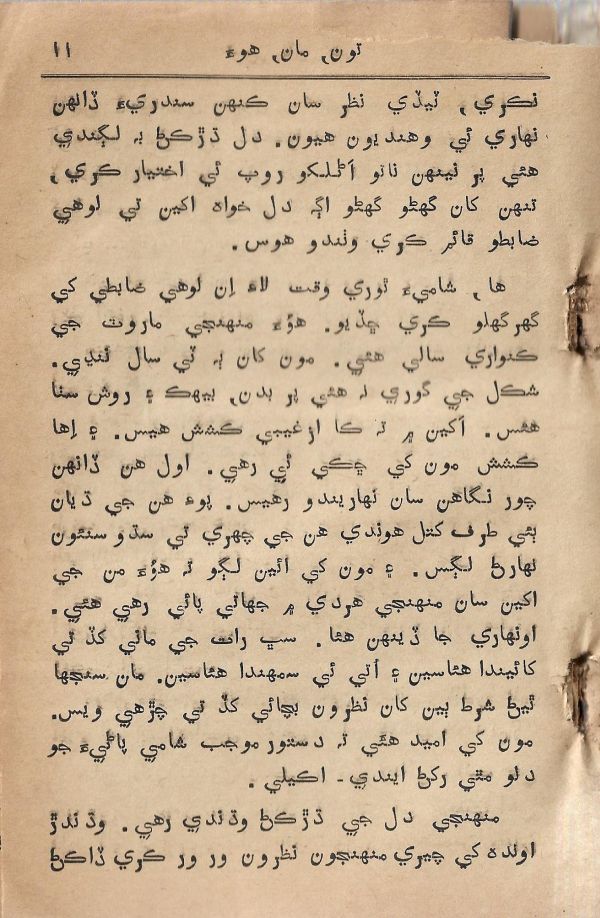 تون, مان, هوءَ ۱۱
نڪري, ٽيڏي نظر سان ڪنهن سندريءَ ڏانهن
نهاري ئي وهنديون هيون. دل ڌڙڪڻ بہ لڳندي
هئي پر نينهن ناتو اڻلکو روپ ئي اختيار ڪري,
تنهن کان گهڻو گهڻو اڳہ دل خواہ اکين تي لوهي
ضابطو قائم ڪري وٺندو هوس.
ها, شاميءَ ٿوري وقت لاءِ اِن لوهي ضابطي کي
گهرگهلو ڪري ڇڏيو. هوءَ منهنجي ماروٽ جي
ڪنواري سالي هئي. مون کان بہ ٽي سال ننڍي.
شڪل جي گوري نہ هئي پر بدن, بيهڪ ۽ روش سٺا
هئس. اکين ۾ تہ ڪا ازغيبي ڪشش هيس. ۽ اِها
ڪشش مون کي ڇڪي ئي رهي. اول هن ڏانهن
چور نگاهن سان نهاريندو رهيس. پوءِ هن جي ڌيان
ٻئي طرف کتل هوندي هن جي چهري تي سڌو سنئون
نهارڻ لڳس. ۽ مون کي ائين لڳو تہ هوءَ من جي
اکين سان منهنجي هردي ۾ جهاتي پائي رهي هئي.
اونهاري جا ڏينهن هئا. سڀ رات جي ماني کڏ تي
کائيندا هئاسين ۽ اُتي ئي سمهندا هئاسين. مان سنجها
ٿيڻ شرط ٻين کان نظرون بچائي کڏ تي چڙهي ويس.
مون کي اميد هئي تہ دستور موجب شامي پاڻيءَ جو
دلو مٿي رکڻ ايندي ـ اڪيلي.
منهنجي دل جي ڌڙڪڻ وڌندي رهي. وڌندڙ
اوندہ کي چيري منهنجون نظرون ور ور ڪري ڏاڪڻ